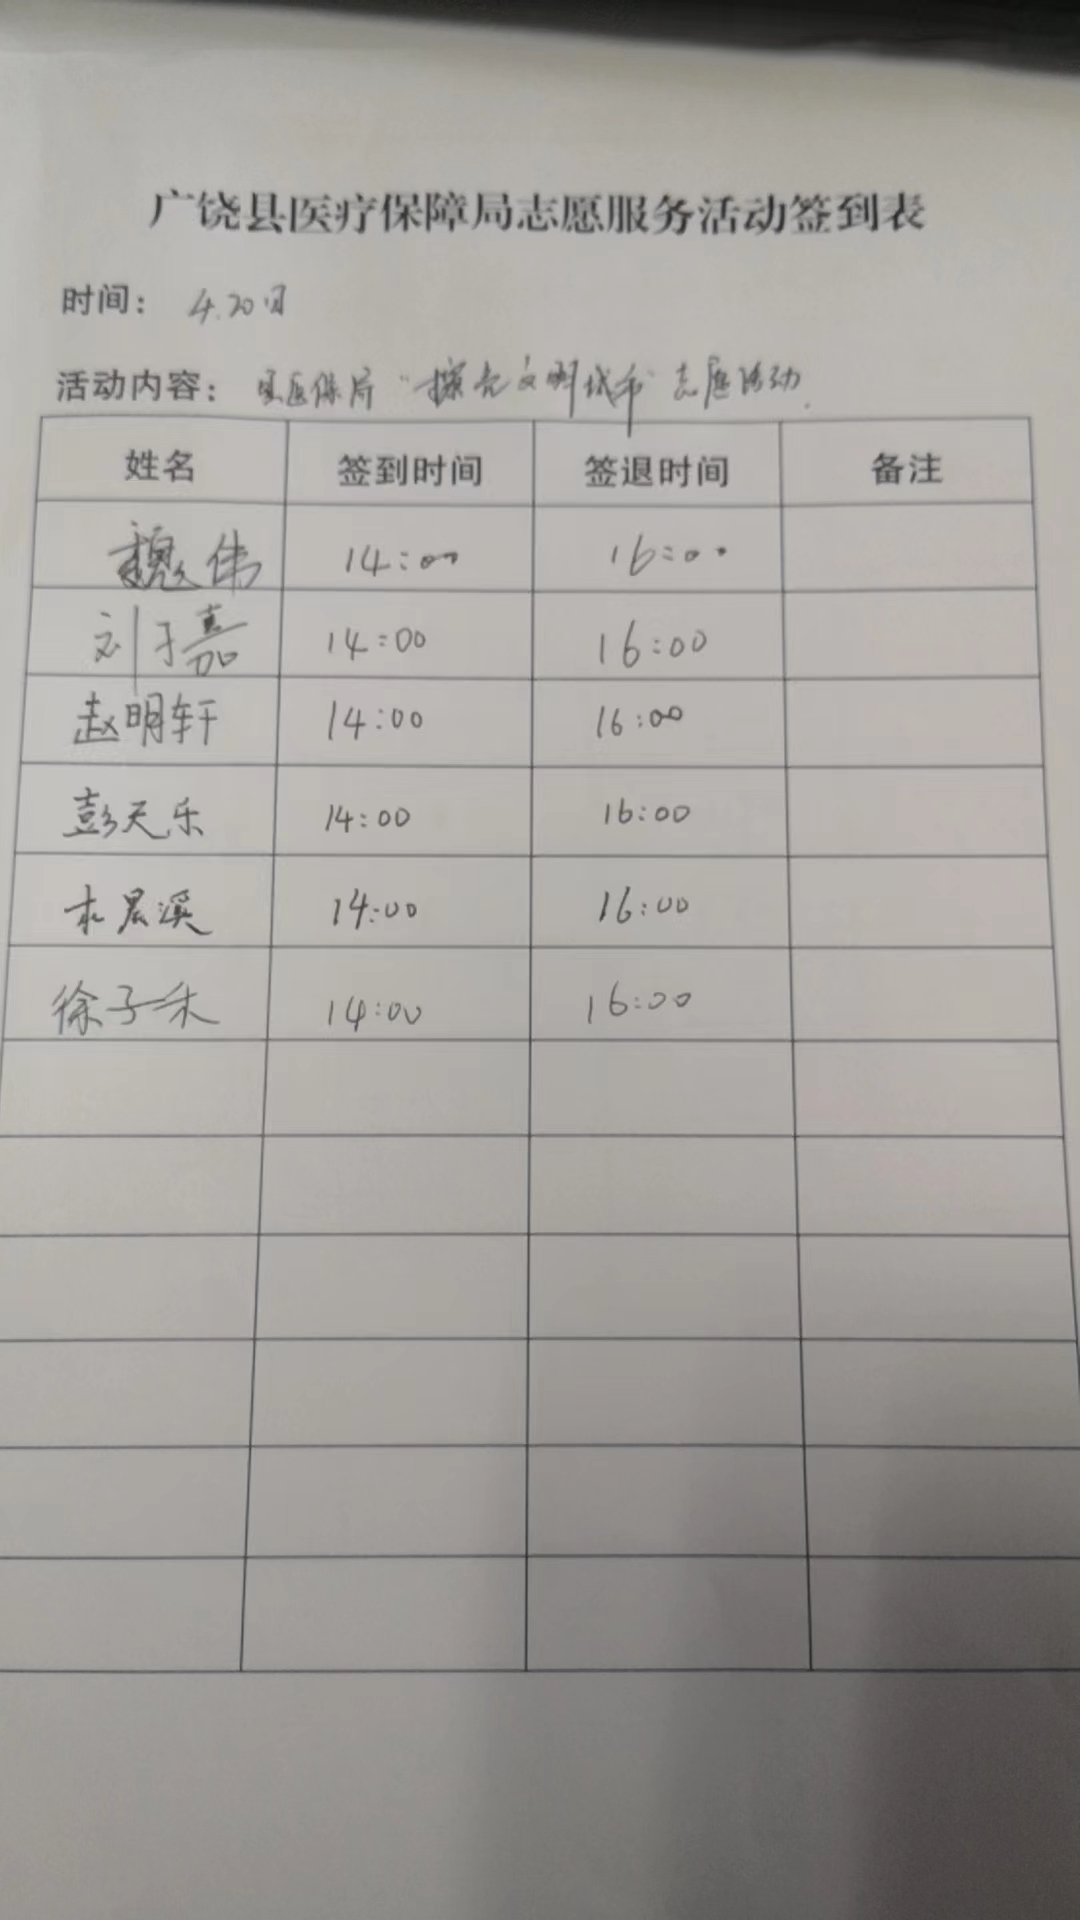 广饶县医疗保障局志愿服务活动签到表
时间： 4.20日
活动内容： 县医保局“擦亮文明城市”志愿活动.
姓名 签到时间 签退时间 备注
魏伟 14:00 16:00
刘于嘉 14:00 16:00
赵明轩 14:00 16:00
彭天乐 14:00 16:00
晨溪 14:00 16:00
徐子禾 14:00 16:00